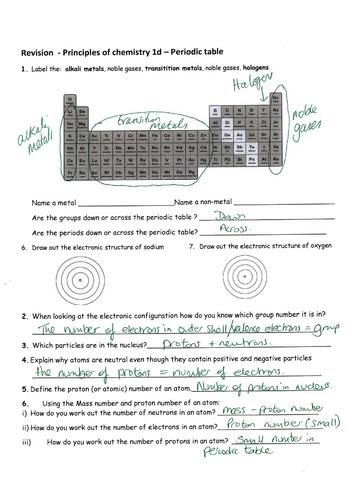 Revision - Principles of chemistry 1d – Periodic table
1. Label the: alkali metals, noble gases, transitition metals, noble gases, halogens
Halogens
alkali metals
transition metals
noble gases
Name a metal
Name a non-metal
Are the groups down or across the periodic table? Down
Are the periods down or across the periodic table? Across.
6. Draw out the electronic structure of sodium
7. Draw out the electronic structure of oxygen
2. When looking at the electronic configuration how do you know which group number it is in?
The number of electrons in outer shell/valence electrons = group
3. Which particles are in the nucleus? Protons + neutrons.
4. Explain why atoms are neutral even though they contain positive and negative particles
the number of protons = number of electrons.
5. Define the proton (or atomic) number of an atom. Number of protons in nucleus.
6. Using the Mass number and proton number of an atom:
i) How do you work out the number of neutrons in an atom? mass - proton number
ii) How do you work out the number of electrons in an atom? Proton number (small)
iii) How do you work out the number of protons in an atom? Small number in
periodic table